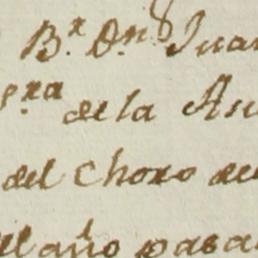 B.r D.n Juan
s.ra de la Au
del Choro de
el año pasa